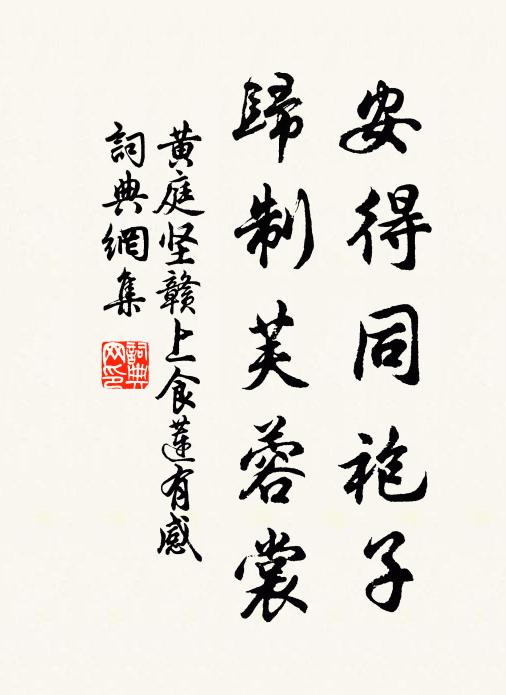 安得同袍子
歸制芙蓉裳
黄庭坚赣上食莲有感
詞典網集
詞典網印